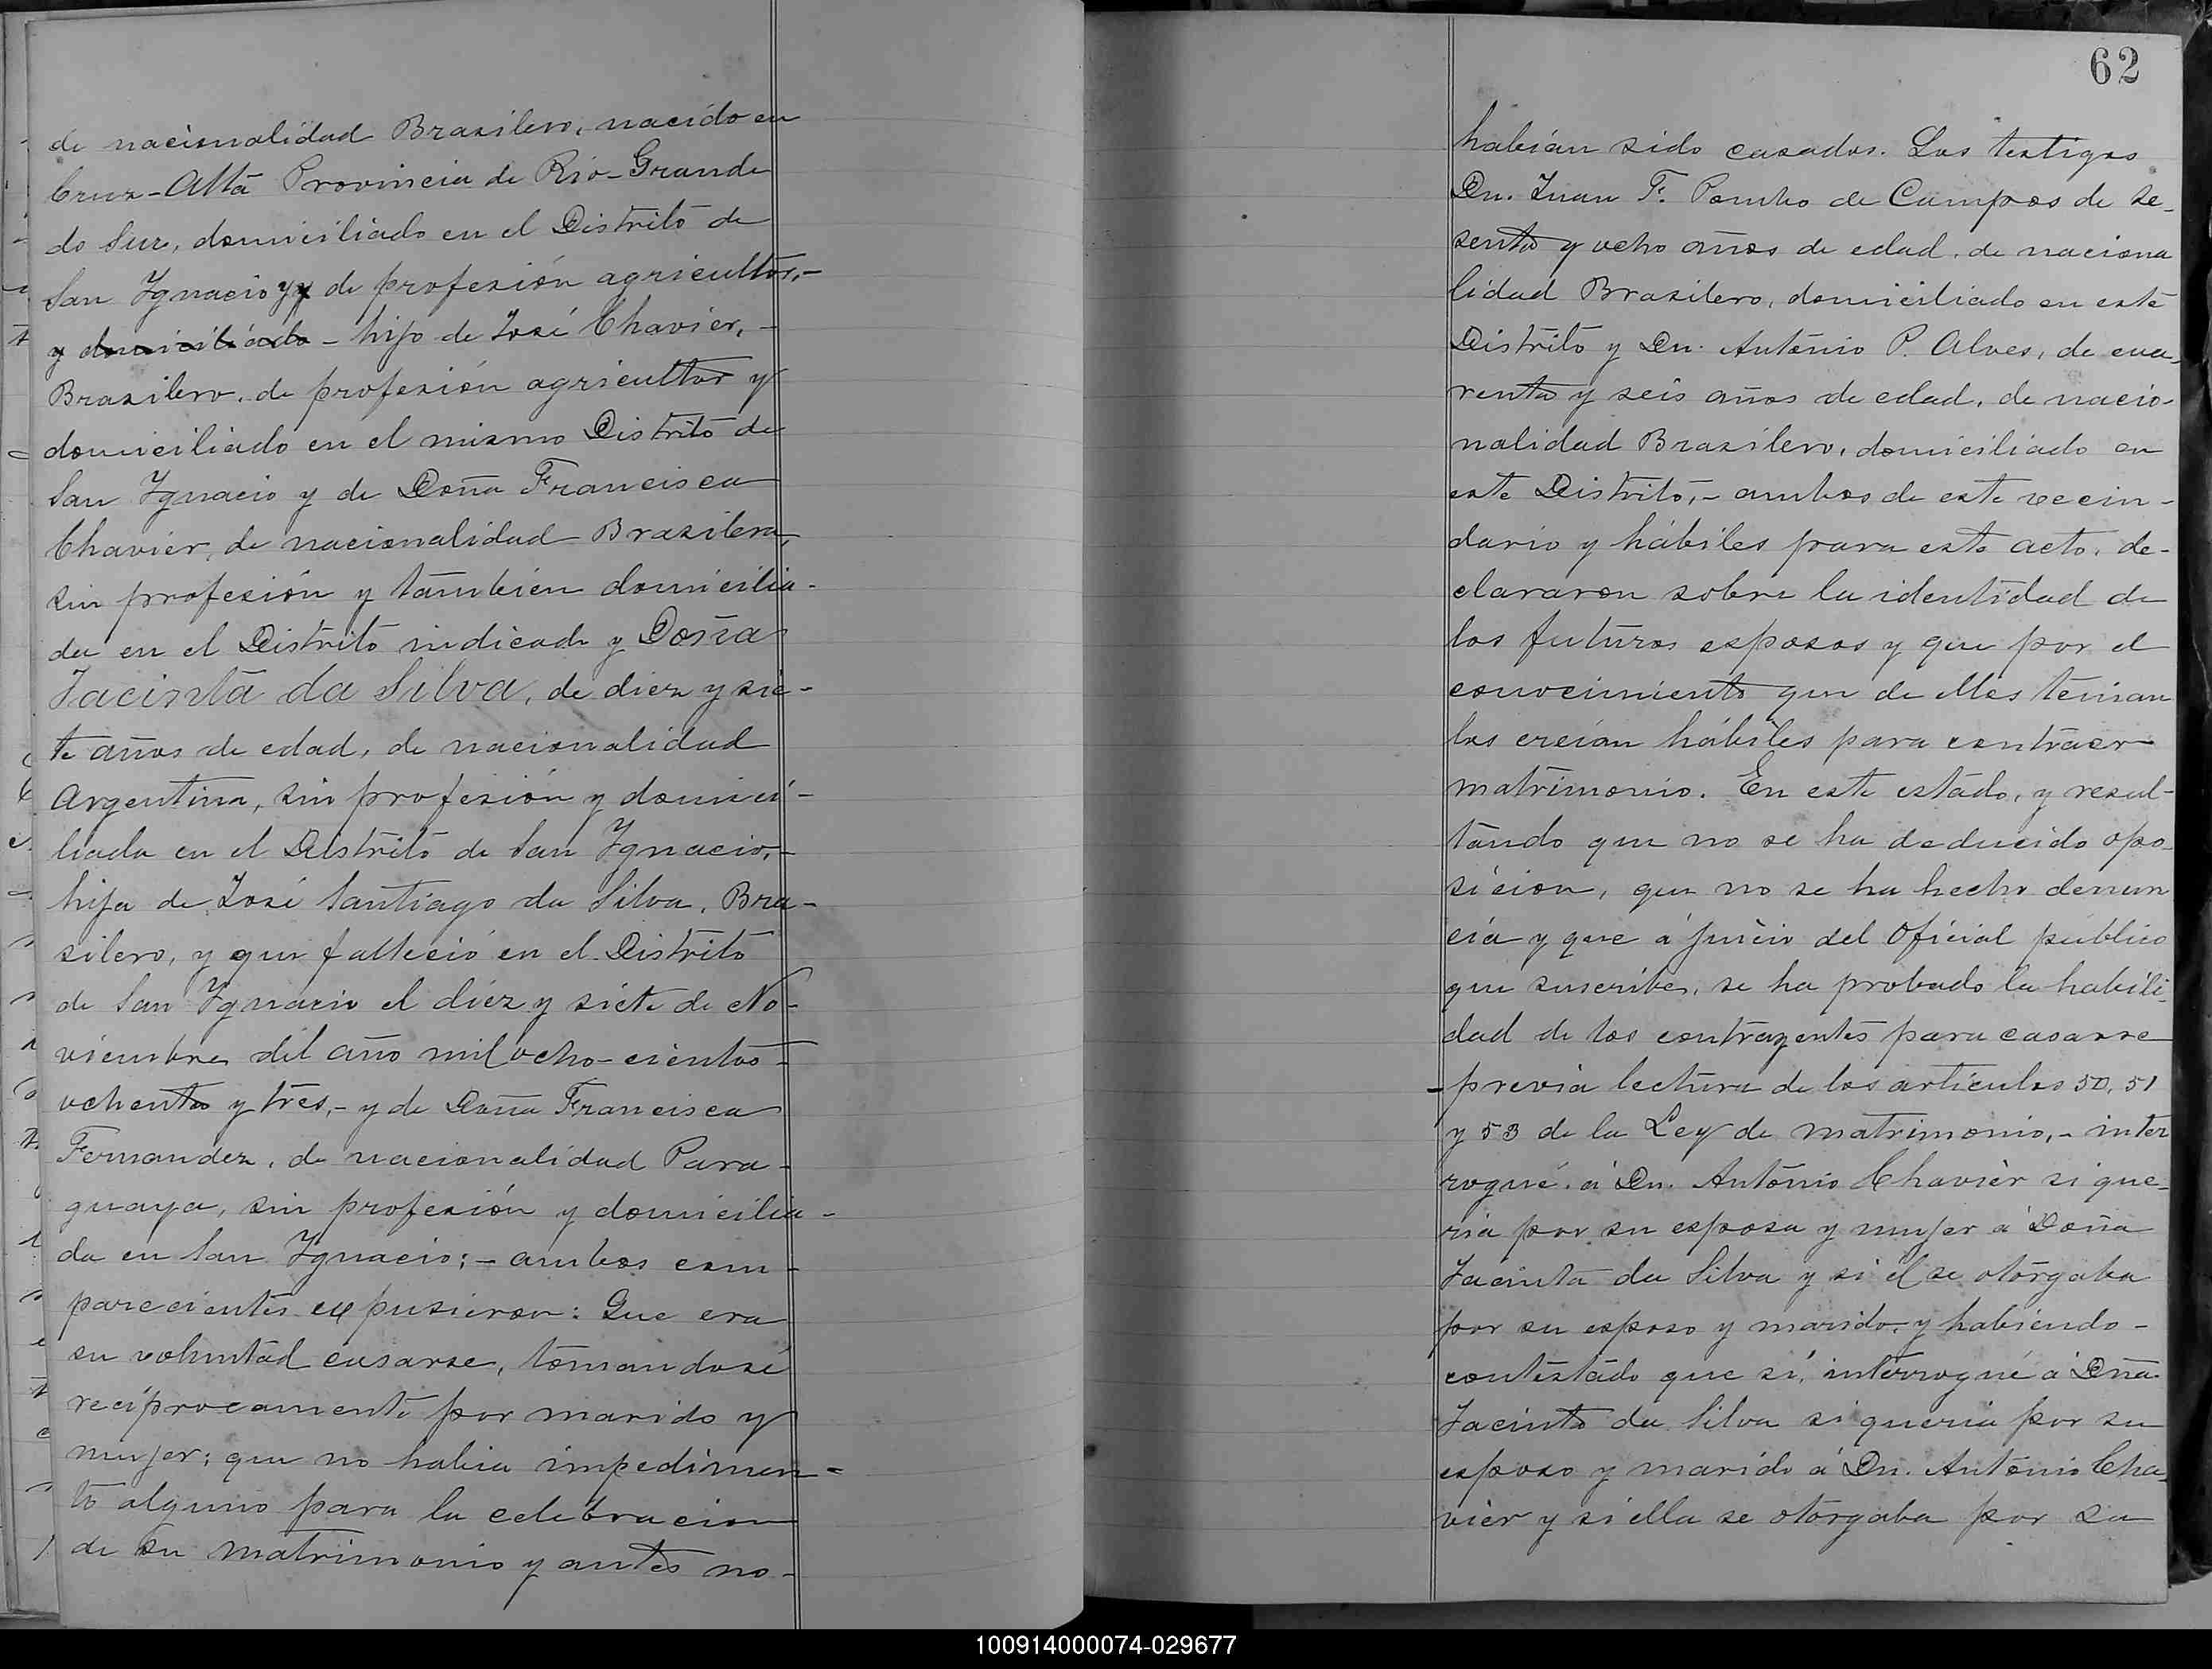 de nacionalidad Brasilero, nacido en
Cruz-Alta Provincia de Rio-Grande
do Sur, domiciliado en el Distrito de
San Ygnacio y de profesión agricultor,-
y domiciliado - hijo de José Chavier, -
Brasilero, de profesión agricultor y
domiciliado en el mismo Distrito de
San Ygnacio y de Doña Francisca
Chavier, de nacionalidad Brasilera,
sin profesión y tambien domicilia-
da en el Distrito indicado y Doña
Jacinta da Silva, de diez y sie-
te años de edad, de nacionalidad
Argentina, sin profesión y domici-
liada en el Distrito de San Ygnacio,-
hija de José Santiago da Silva, Bra-
silero, y que falleció en el Distrito
de San Ygnacio el diez y siete de No-
viembre del año mil ocho-cientos-
ochenta y tres,- y de Doña Francisca
Fernandez, de nacionalidad Para-
guaya, sin profesión y domicilia-
da en San Ygnacio; - ambos com-
parecientes expusieron: Que era
su voluntad casarse, tomandosé
reciprocamente por marido y
mujer; que no habia impedimen-
to alguno para la celebracion
de su matrimonio y antes no-
62
habían sido casados. Los testigos
Dn. Juan F. Pombo de Campos de se-
senta y ocho años de edad, de naciona
lidad Brasilero, domiciliado en este
Distrito y Dn. Antonio P. Alves, de cua-
renta y seis años de edad, de nacio-
nalidad Brasilero, domiciliado en
este Distrito,- ambos de este vecin-
dario y hábiles para este acto, de-
clararon sobre la identidad de
los futuros esposos y que por el
conocimiento que de ellos tenian
los creían hábiles para contraer
matrimonio. En este estado, y resul-
tando que no se ha deducido opo-
sicion, que no se ha hecho denun
cia y que á juicio del Oficial público
que suscribe, se ha probado la habili-
dad de los contrayentes para casarse
-previa lectura de los artículos 50, 51
y 53 de la Ley de matrimonio,- inter
rogué á Dn. Antonio Chavier si que-
ria por su esposa y mujer á Doña
Jacinta da Silva y si él se otorgaba
por su esposo y marido, y habiendo-
contestado que si, interrogué á Dña.
Jacinta da Silva si queria por su
esposo y marido á Dn. Antonio Cha-
vier y si ella se otorgaba por su
100914000074-029677